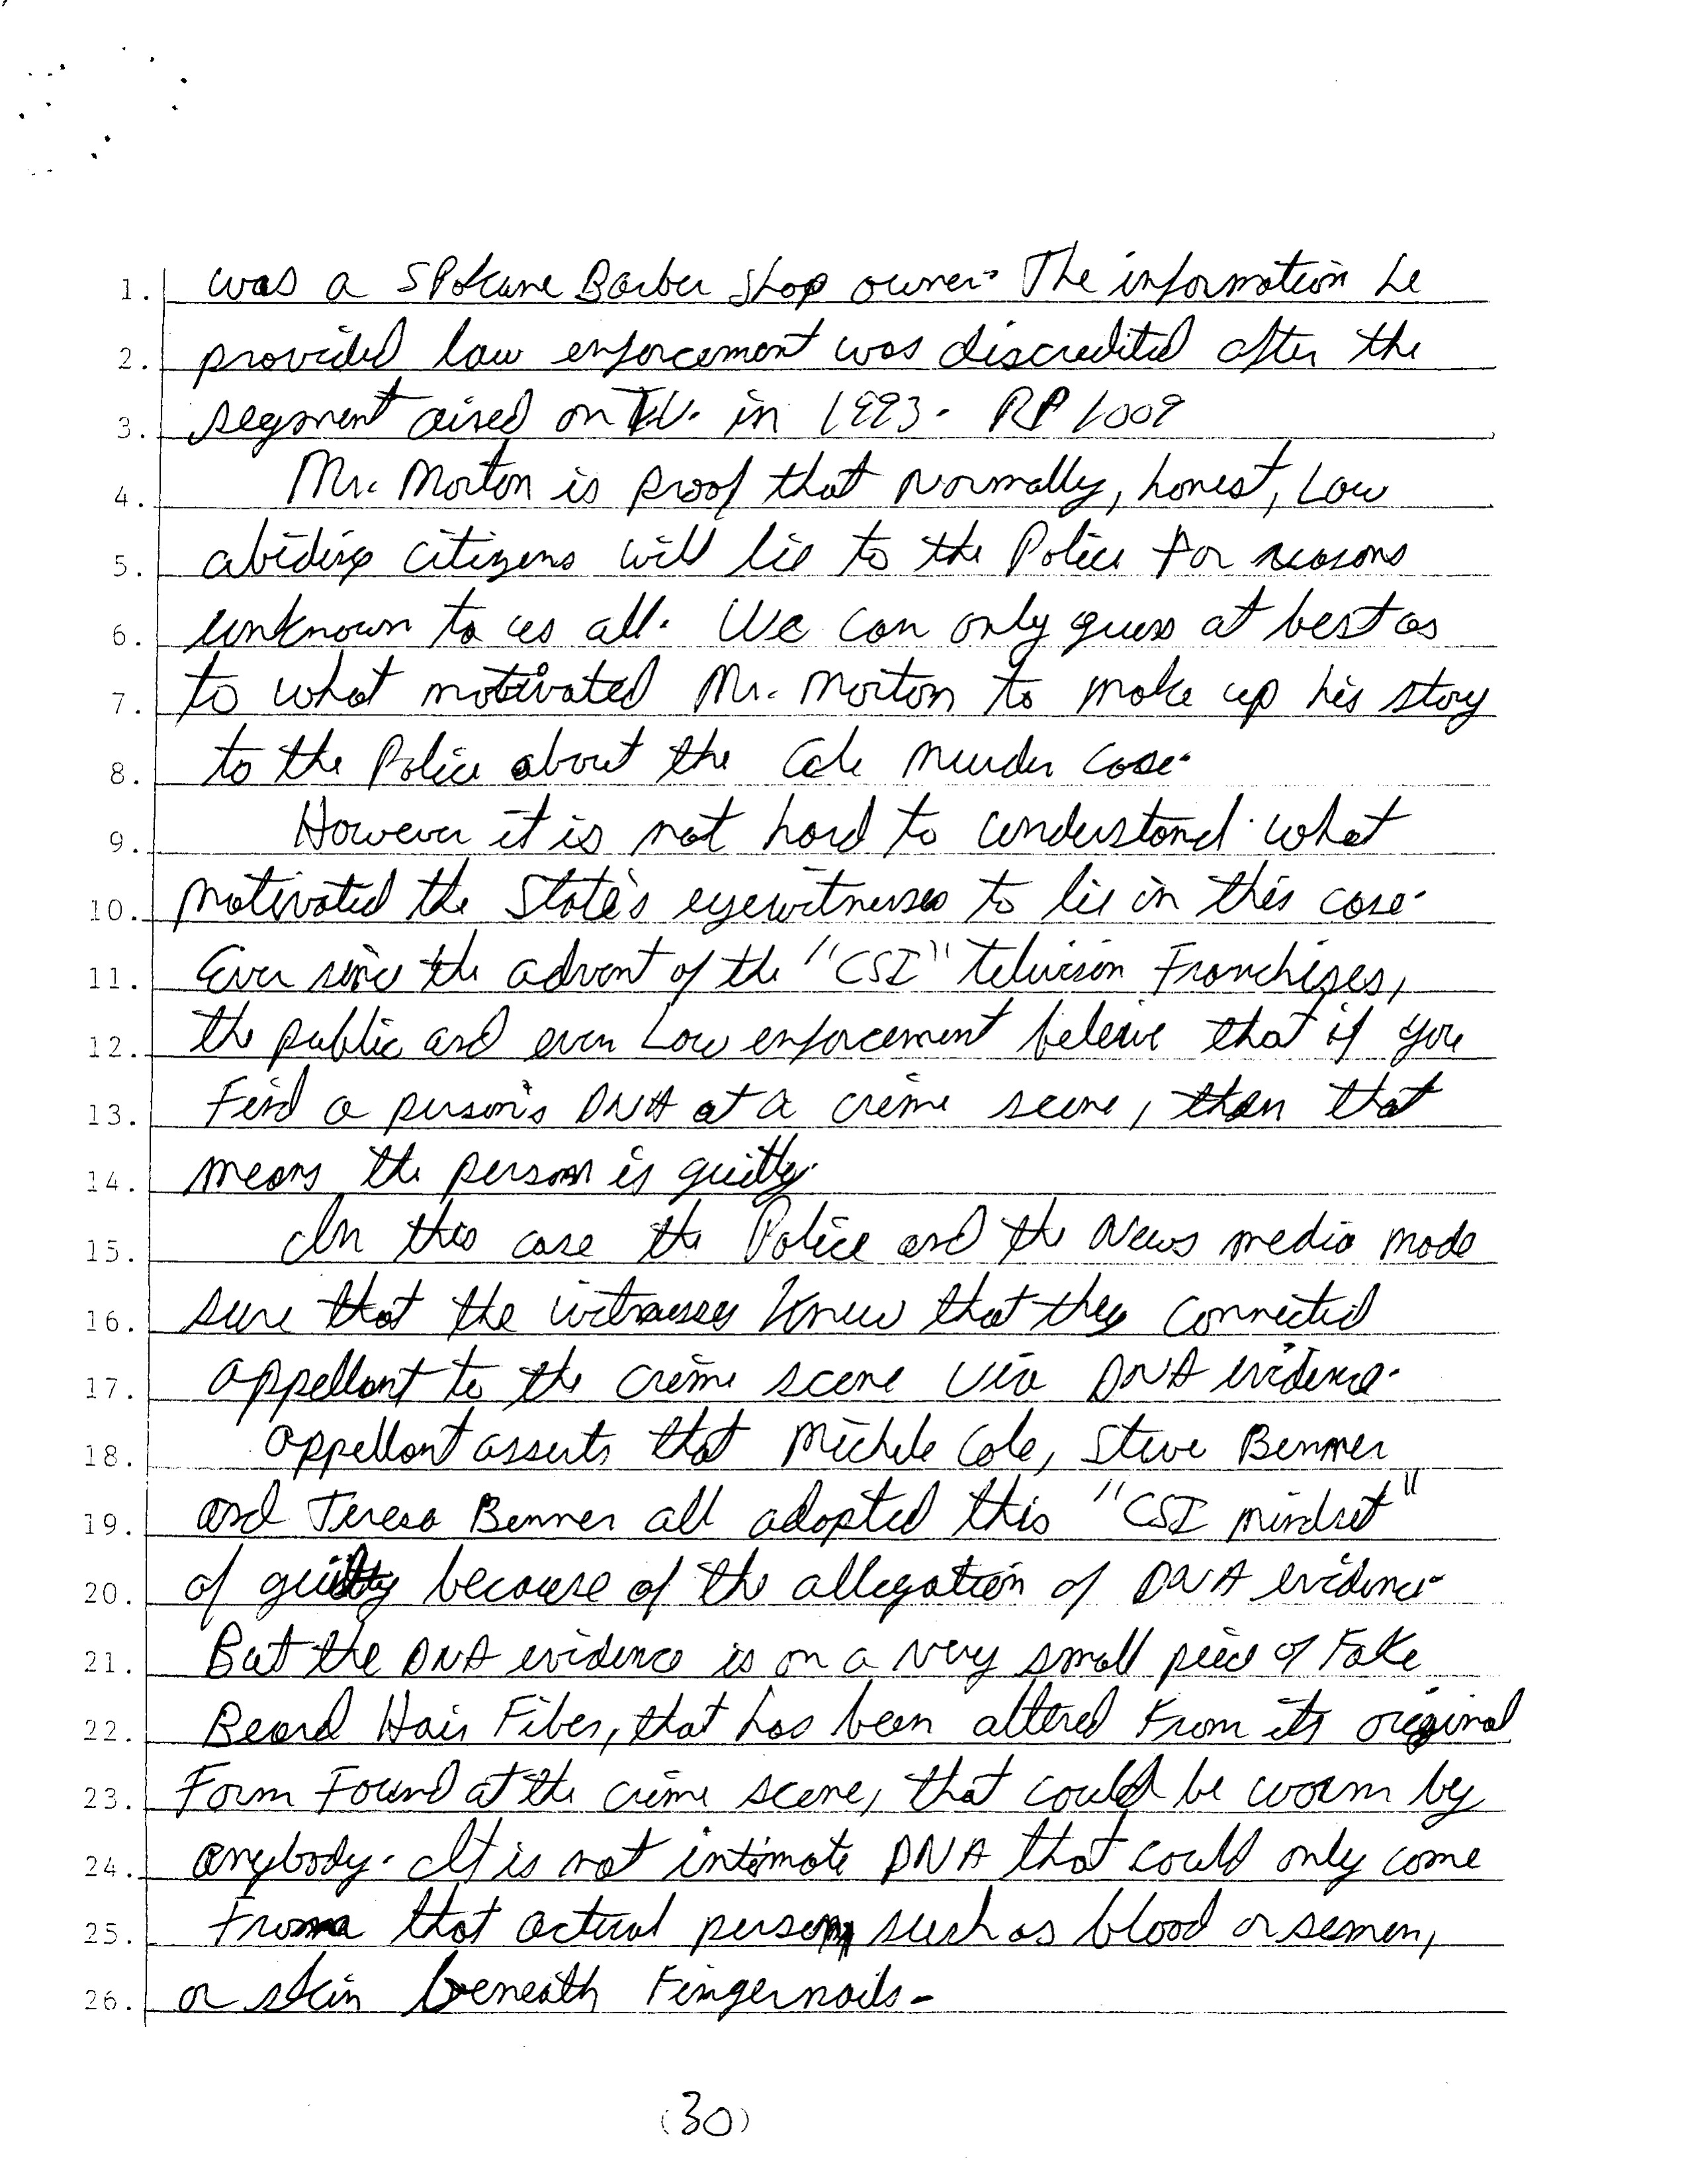 1. was a Spokane Barber Shop owner. The information he
2. provided law enforcement was discredited after the
3. segment aired on T.V. in 1993. RP 1009
4. Mr. Morton is proof that Normally, honest, Law
5. abiding citizens will lie to the Police For reasons
6. unknown to us all. We can only guess at best as
7. to what motivated Mr. Morton to make up his story
8. to the Police about the Cole Murder Case.
9. However it is not hard to understand what
10. motivated the State's eyewitnesses to lie in this case.
11. Ever since the advent of the "CSI" television Franchises,
12. the public and even Law enforcement beleive that if you
13. Find a person's DNA at a crime scene, then that
14. means the person is guilty.
15. In this case the Police and the News media made
16. sure that the witnesses knew that they connected
17. appellant to the crime scene via DNA evidence.
18. appellant asserts that Michele Cole, Steve Benner
19. and Teresa Benner all adopted this "CSI mindset"
20. of guilty because of the allegation of DNA evidence.
21. But the DNA evidence is on a very small piece of Fake
22. Beard Hair Fiber, that has been altered From its original
23. Form Found at the crime scene, that could be worn by
24. anybody. It is not intimate DNA that could only come
25. From that actual person, such as blood or semen,
26. or skin beneath Fingernails.
(30)